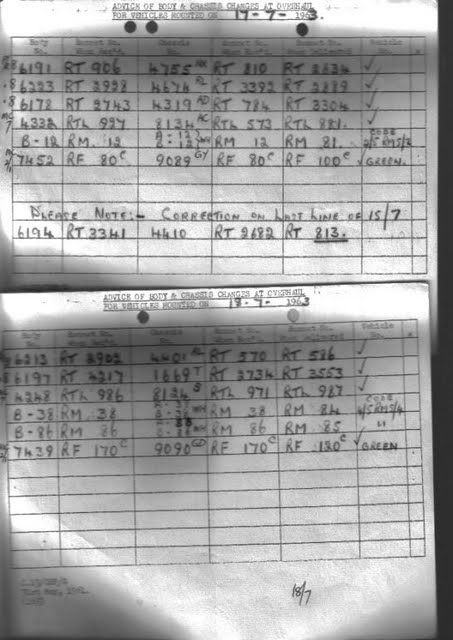 ADVICE OF BODY & CHASSIS CHANGES AT OVERHAUL
FOR VEHICLES MOUNTED ON 17-7-1963.
Body No. Bonnet No. When Rec'd. Chassis No. Bonnet No. When Rec'd. Bonnet No. When Delivered Vehicle
6191 RT 906 4755 RT 810 RT 2634 ✓
6223 RT 2928 4674 RL RT 3392 RT 2889 ✓
6178 RT 2743 4319 RT 784 RT 3304 ✓
4332 RTL 997 8134 AC RTL 573 RTL 881. ✓
B-12 RM. 12 RM 12 RM 81. CODE 2/5 RM5/2
7452 RF 80C 9089 GY RF 80C RF 100C ✓ GREEN.
PLEASE NOTE:- CORRECTION ON LAST LINE OF 15/7
6194 RT 3341 4410 RT 2682 RT 813.
ADVICE OF BODY & CHASSIS CHANGES AT OVERHAUL
FOR VEHICLES MOUNTED ON 18-7-1963
Body No. Chassis No. Vehicle No.
6213 RT 3902 4401 RT 570 RT 516 ✓
6197 RT 4217 1669 T RT 2734 RT 2553 ✓
4248 RTL 986 8124 S RTL 971 RTL 987 ✓
B-38 RM 38 RM 38 RM 84 CODE
B-86 RM 86 RM 86 RM 85 "
7439 RF 170C 9090 GD RF 170C RF 120C ✓ GREEN
18/7